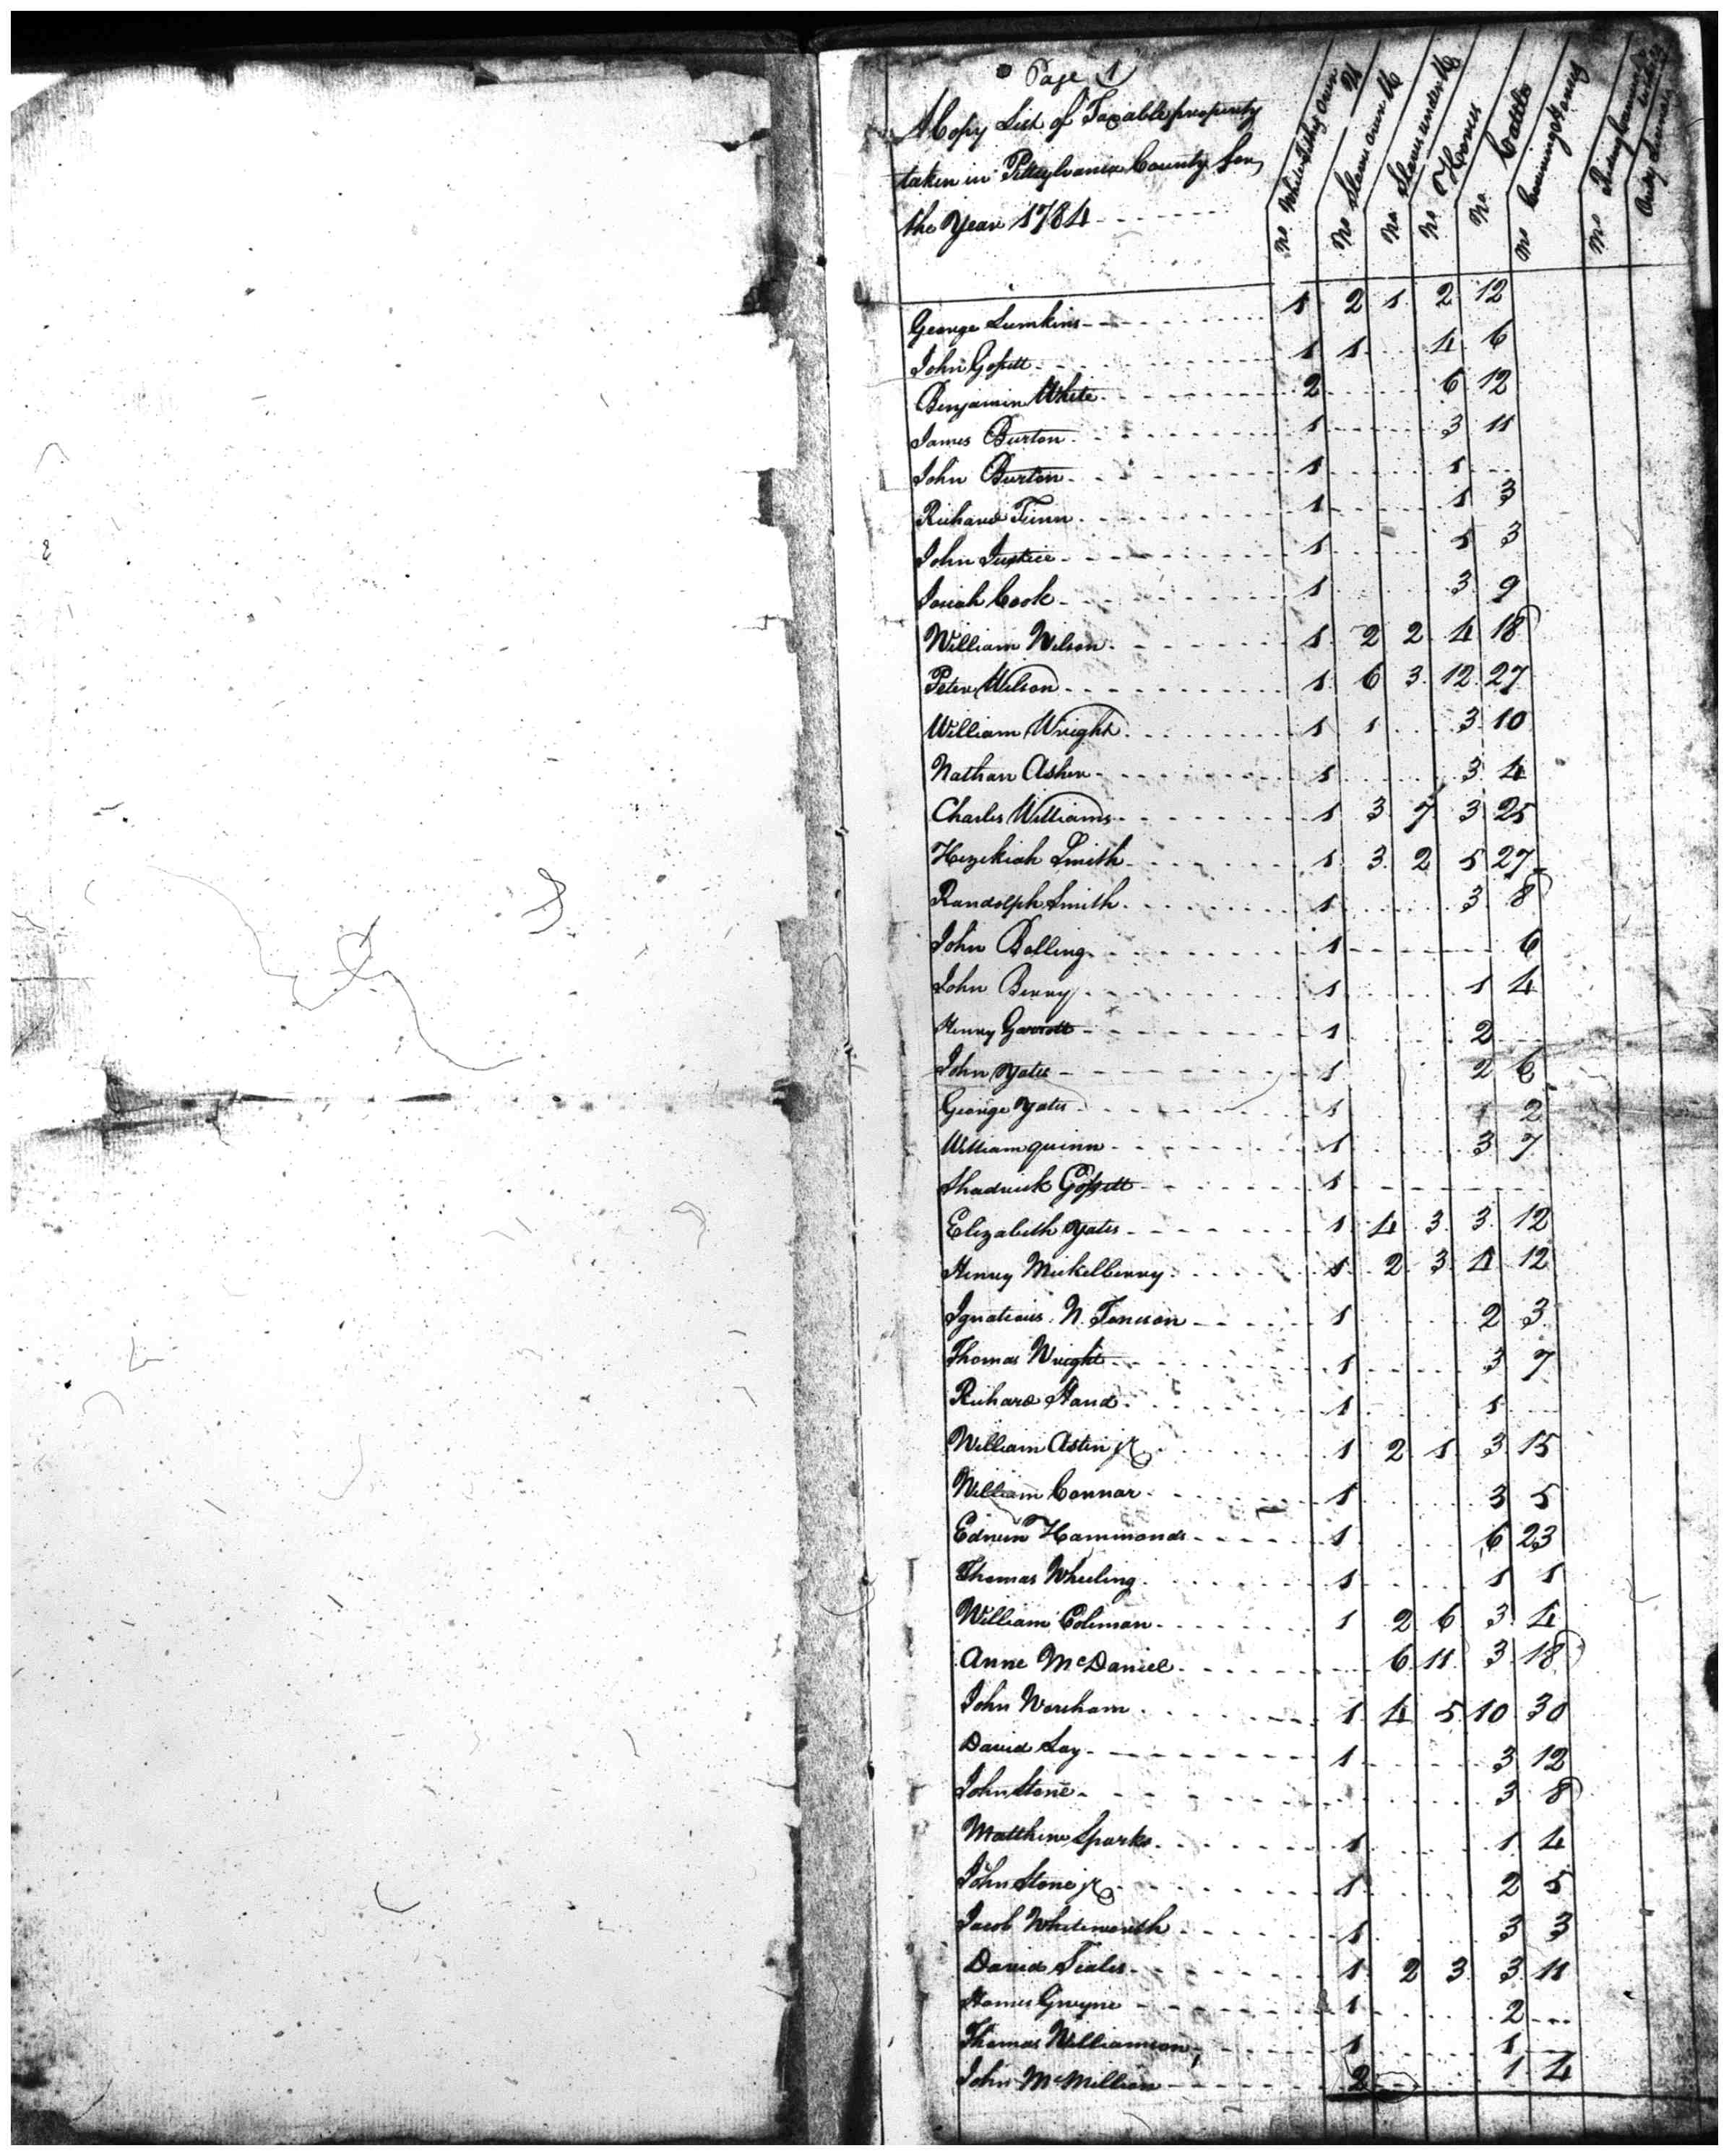 Page 1
A Copy List of Taxable property
taken in Pittsylvania County for
the Year 1784
No White Tithes over 21
No Slaves over 16
No Slaves under 16
No Horses
No Cattle
No
No
George Lumkins 1 2 1 2 12
John Gossett 1 1 4 6
Benjamin White 2 6 12
James Burton 1 3 11
John Burton 1 1
Richard Tunn 1 1 3
John Justice 1 5 3
Josiah Cook 1 3 9
William Wilson 1 2 2 4 18
Peter Wilson 1 6 3 12 27
William Wright 1 1 3 10
Nathan Asher 1 3 4
Charles Williams 1 3 7 3 25
Hezekiah Smith 1 3 2 5 27
Randolph Smith 1 3 8
John Bolling 1 6
John Berry 1 1 4
Henry Garrott 1 2
John Yates 1 2 6
George Yates 1 1 2
William quinn 1 3 7
Shadrick Gossett 1
Elizabeth Yates 1 4 3 3 12
Henry Mickelberry 1 2 3 4 12
Ignatious N. 1 2 3
Thomas Wright 1 3 7
Richard Hand 1 1
William Astin jr 1 2 1 3 15
William Connor 1 3 5
Edwin Hammonds 1 6 23
Thomas Wheeling 1 1 1
William Coleman 1 2 6 3 4
Anne McDaniel 6 11 3 18
John Worsham 1 4 5 10 30
David Lay 1 3 12
John Stone 3 8
Matthew Sparks 1 1 4
John Stone jr 1 2 5
Jacob Whitworth 1 3 3
David 1 2 3 3 11
Gwyne 1 2
Thomas Williamson 1 1
John McMillion 2 1 4